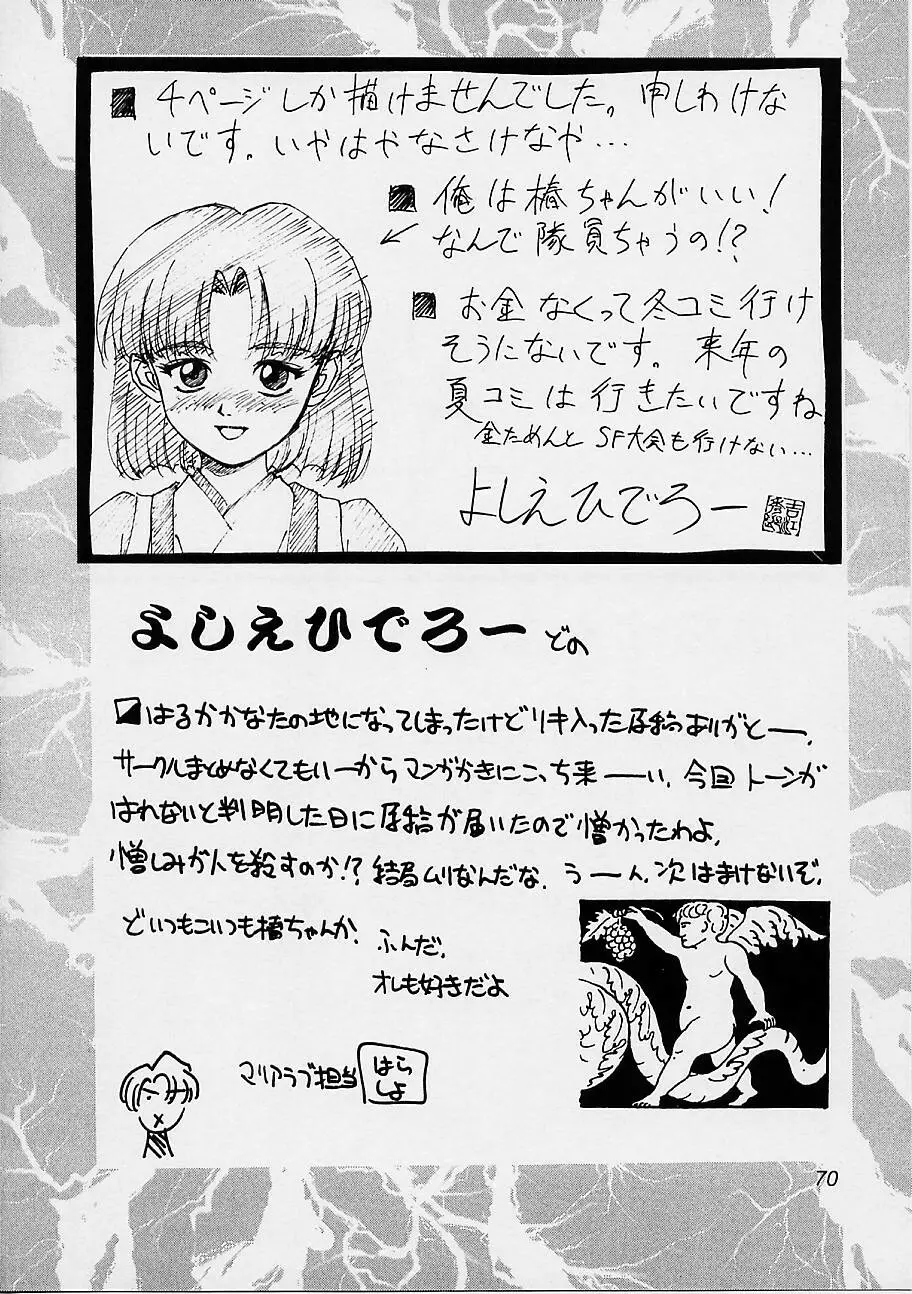 ■ 4ページしか描けませんでした。申しわけな
いです。いやはやなさけなや…
■ 俺は椿ちゃんがいい!
なんで隊員ちゃうの!?
■ お金なくって冬コミ行け
そうにないです。来年の
夏コミは行きたいですね
金ためんと SF大会も行けない…
よしえひでろー
よしえひでろー どの
はるかかなたの地になってしまったけどリキ入った原稿ありがとーっ.
サークルまとめなくてもいーからマンガかきにこっち来ーい. 今回トーンが
はれないと判明した日に原稿が届いたので憎かったわよ.
憎しみが人を殺すのか!? 結局ムリなんだな. うーん. 次はまけないぞ.
どいつもこいつも椿ちゃんか.
ふんだ.
オレも好きだよ
マリアラブ担当 はら
しょ
70